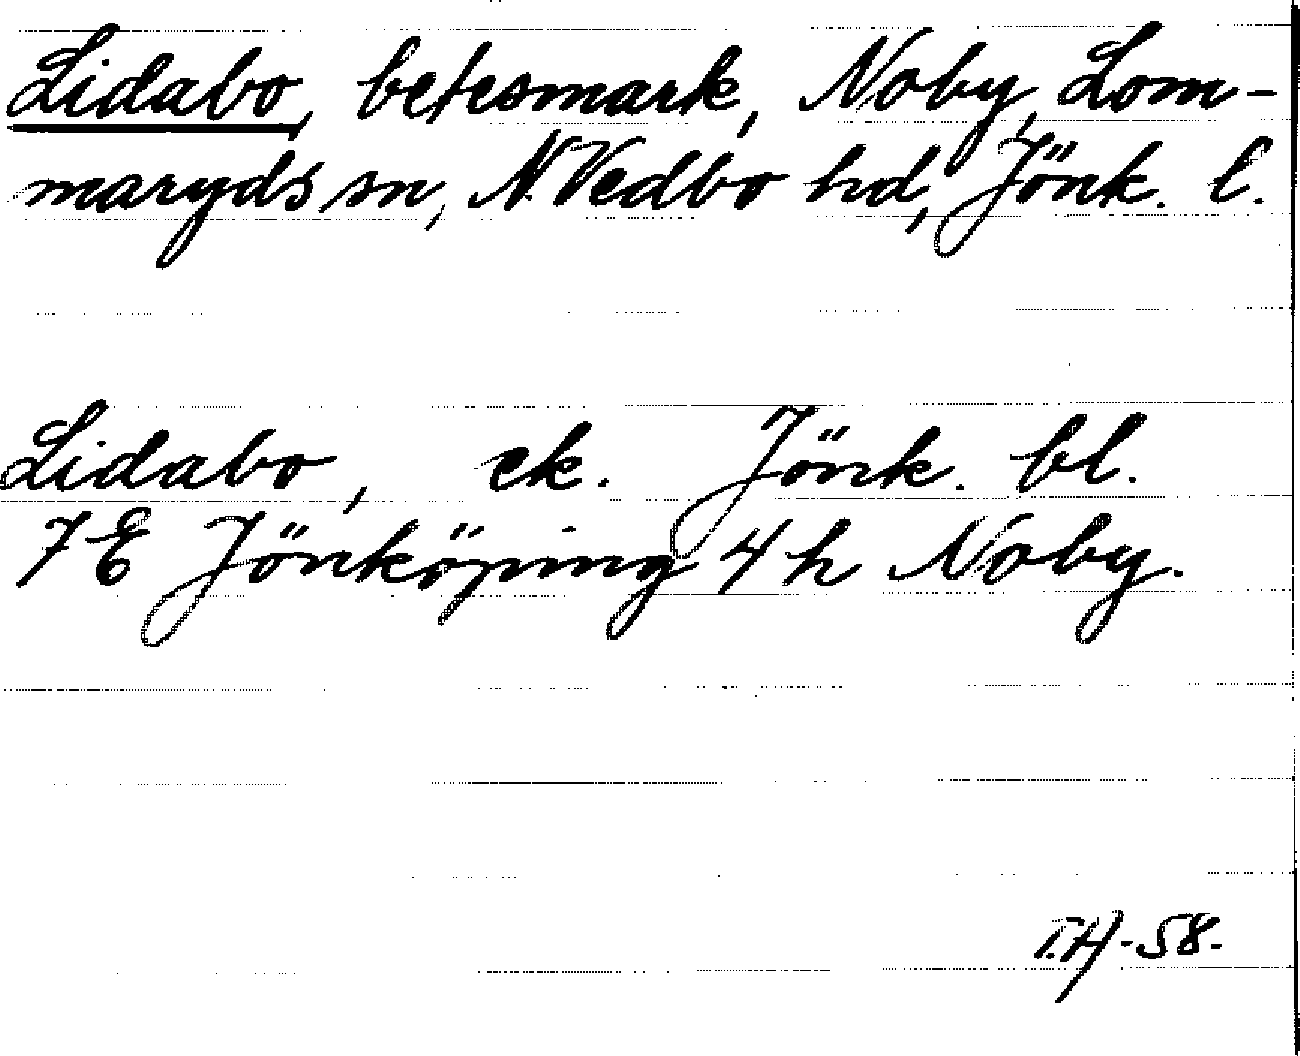 Lidabo, betesmark, Noby, Lom-
maryds sn, N. Vedbo hd, Jönk. l.
Lidabo, ek. Jönk. bl.
7E Jönköping 4h Noby.
T.H-58.